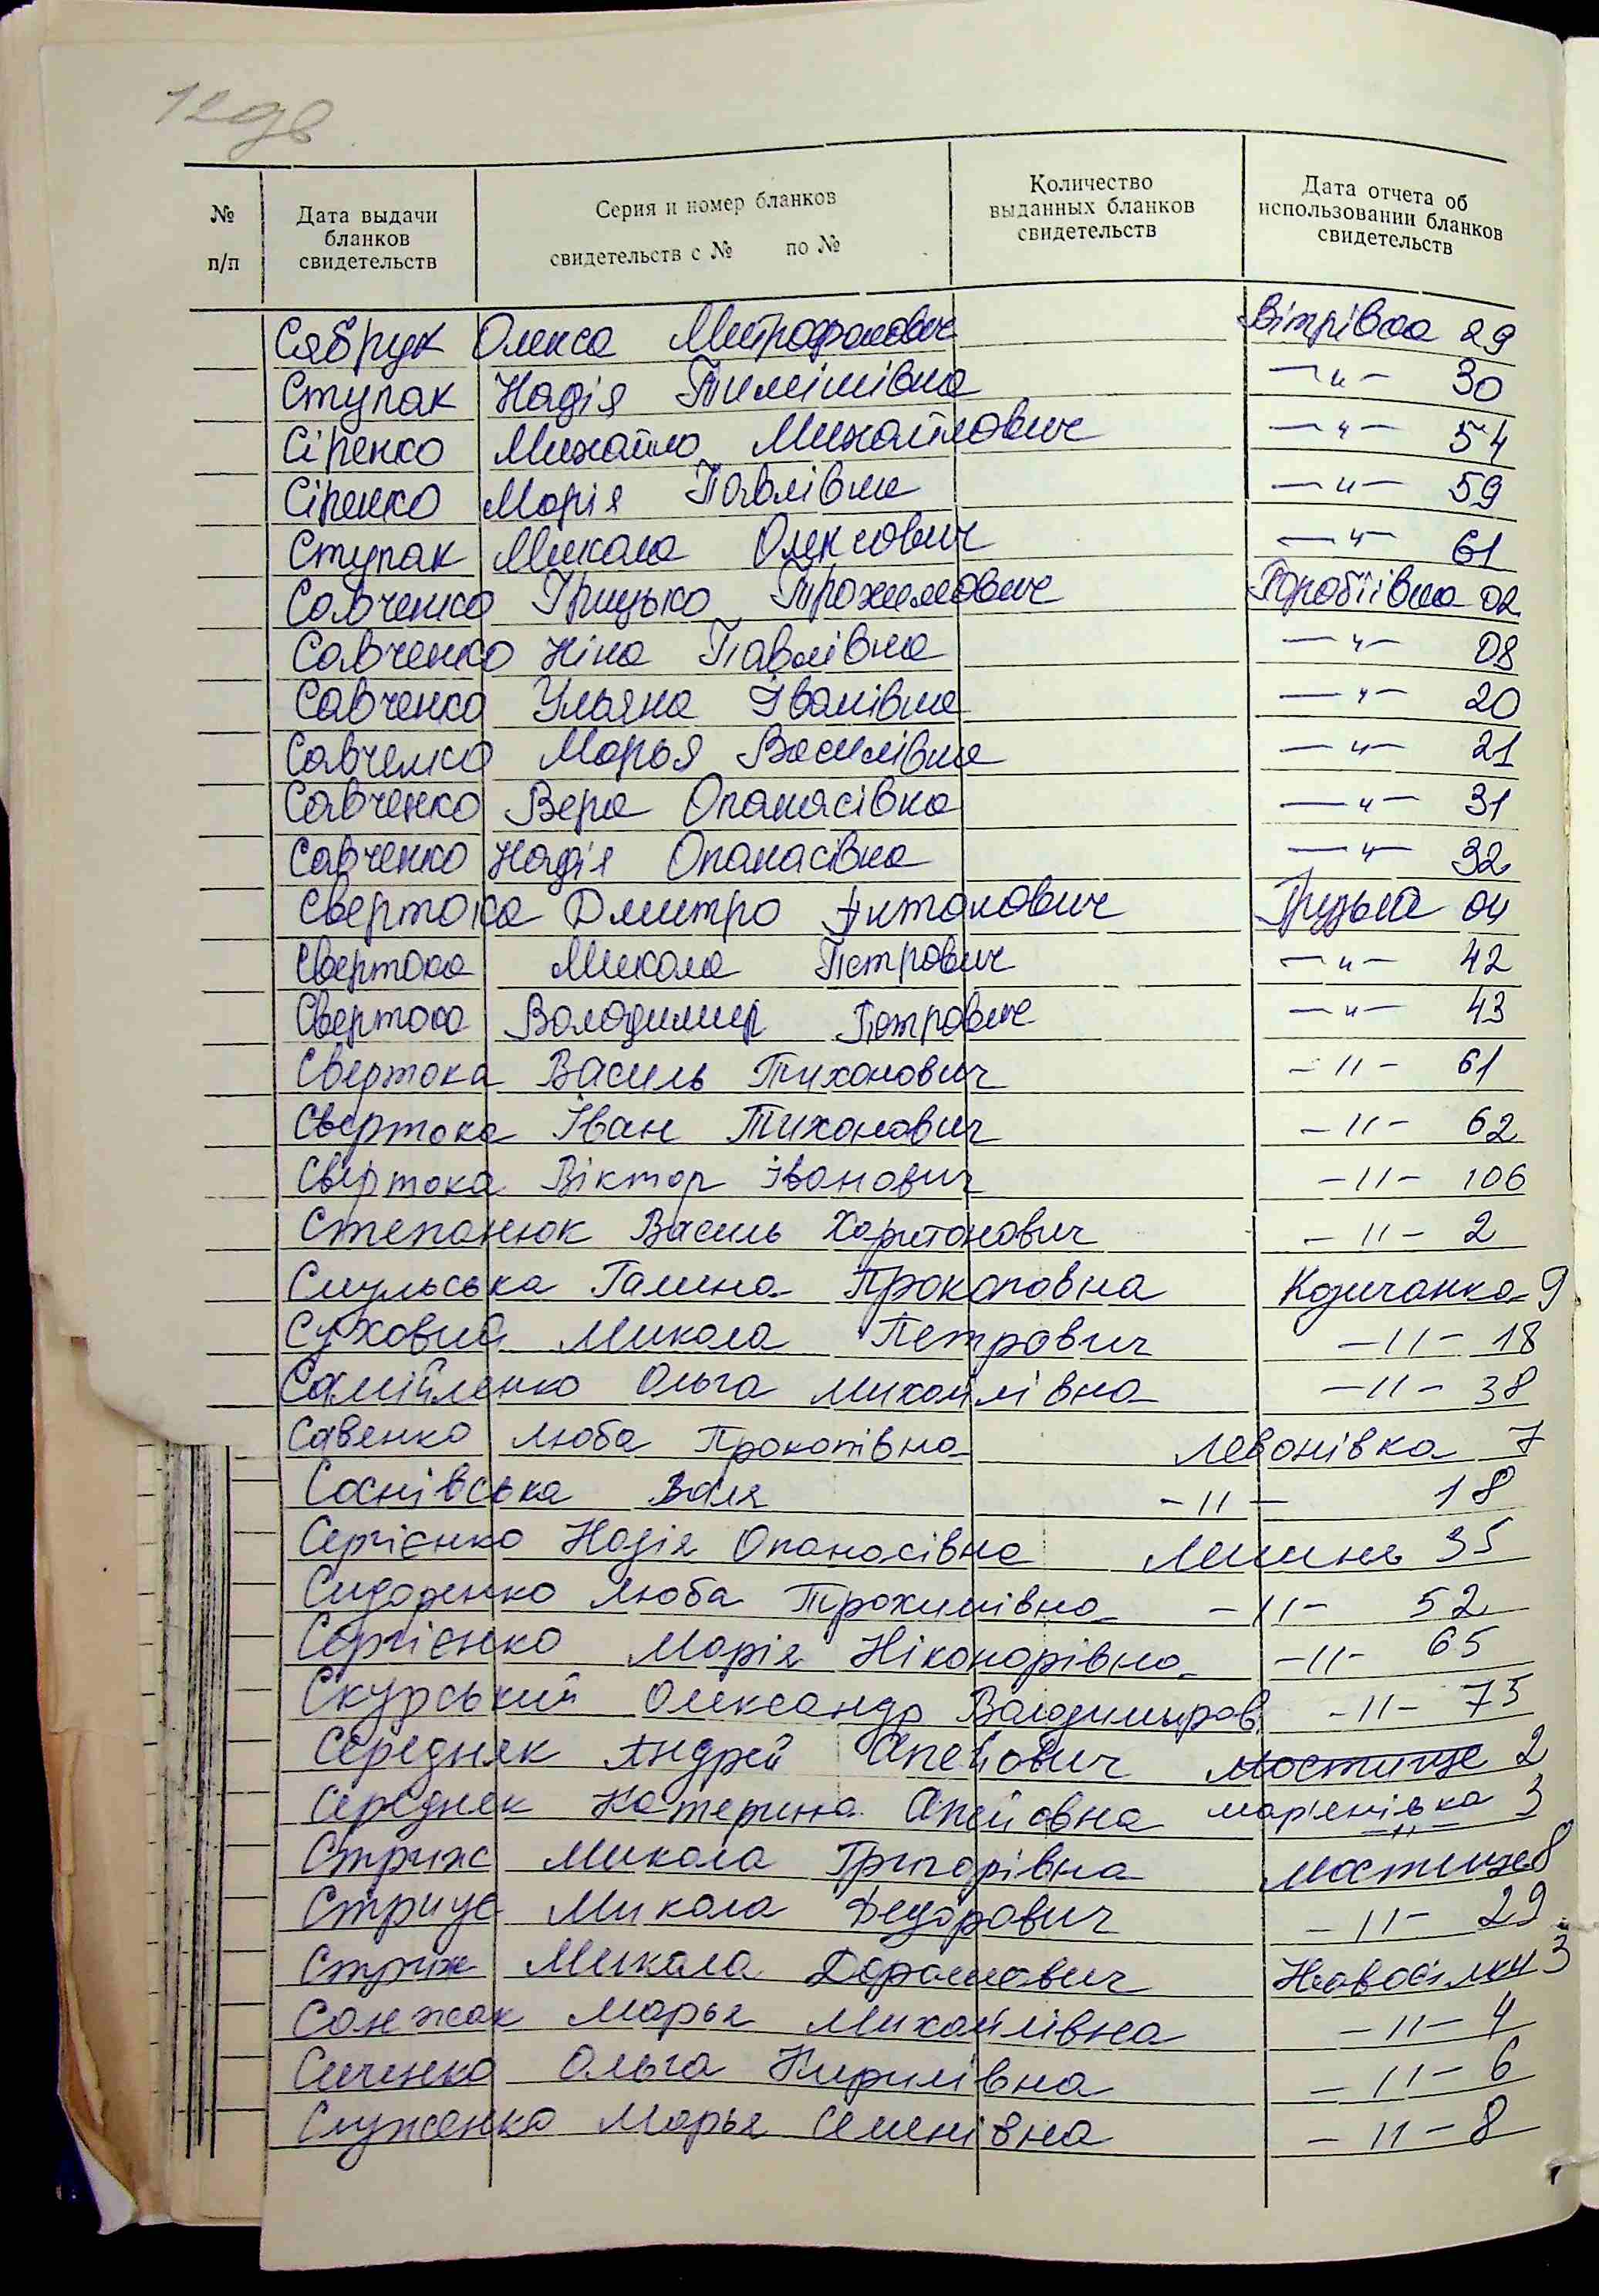 № п/п
Дата выдачи бланков свидетельств
Серия и номер бланков свидетельств с № по №
Количество выданных бланков свидетельств
Дата отчета об использовании бланков свидетельств
Сябрук Олекса Митрофанович Вітрівка 29
Ступак Надія Тимішівна –"– 30
Сіренко Михайло Михайлович –"– 54
Сіренко Марія Павлівна –"– 59
Ступак Микола Олексович –"– 61
Савченко Грицько Трохимович Горобіївка 02
Савченко Ніна Павлівна –"– 08
Савченко Ульяна Іванівна –"– 20
Савченко Марья Василівна –"– 21
Савченко Вера Опанасівна –"– 31
Савченко Надія Опанасівна –"– 32
Свертока Дмитро Антонович Грузька 04
Свертока Микола Петрович –"– 42
Свертока Володимир Петрович –"– 43
Свертока Василь Тихонович –"– 61
Свертока Іван Тихонович –"– 62
Свертока Віктор Іванович –"– 106
Степанюк Василь Харитонович –"– 2
Смульська Галина Прокоповна Козичанка 9
Суховий Микола Петрович –"– 18
Самійленко Ольга Михайлівна –"– 38
Савенко Люба Прокопівна Левонівка 7
Соснівська Валя –"– 18
Сергієнко Надія Опанасівна Лишня 35
Сидоренко Люба Трохимівна –"– 52
Сергієнко Марія Ніконорівна –"– 65
Скурський Олександр Володимиров. –"– 75
Середняк Андрей Апейович Мостище 2
Середняк Катерина Апейовна мар'янівка –"– 3
Стриж Микола Григорівна Мостище 8
Стриус Микола Федорович –"– 29
Стриж Микола Дорошович Новосілки 3
Санжак Марья Михайлівна –"– 4
Сиченко Ольга Кирилівна –"– 6
Служенко Марья Семенівна –"– 8